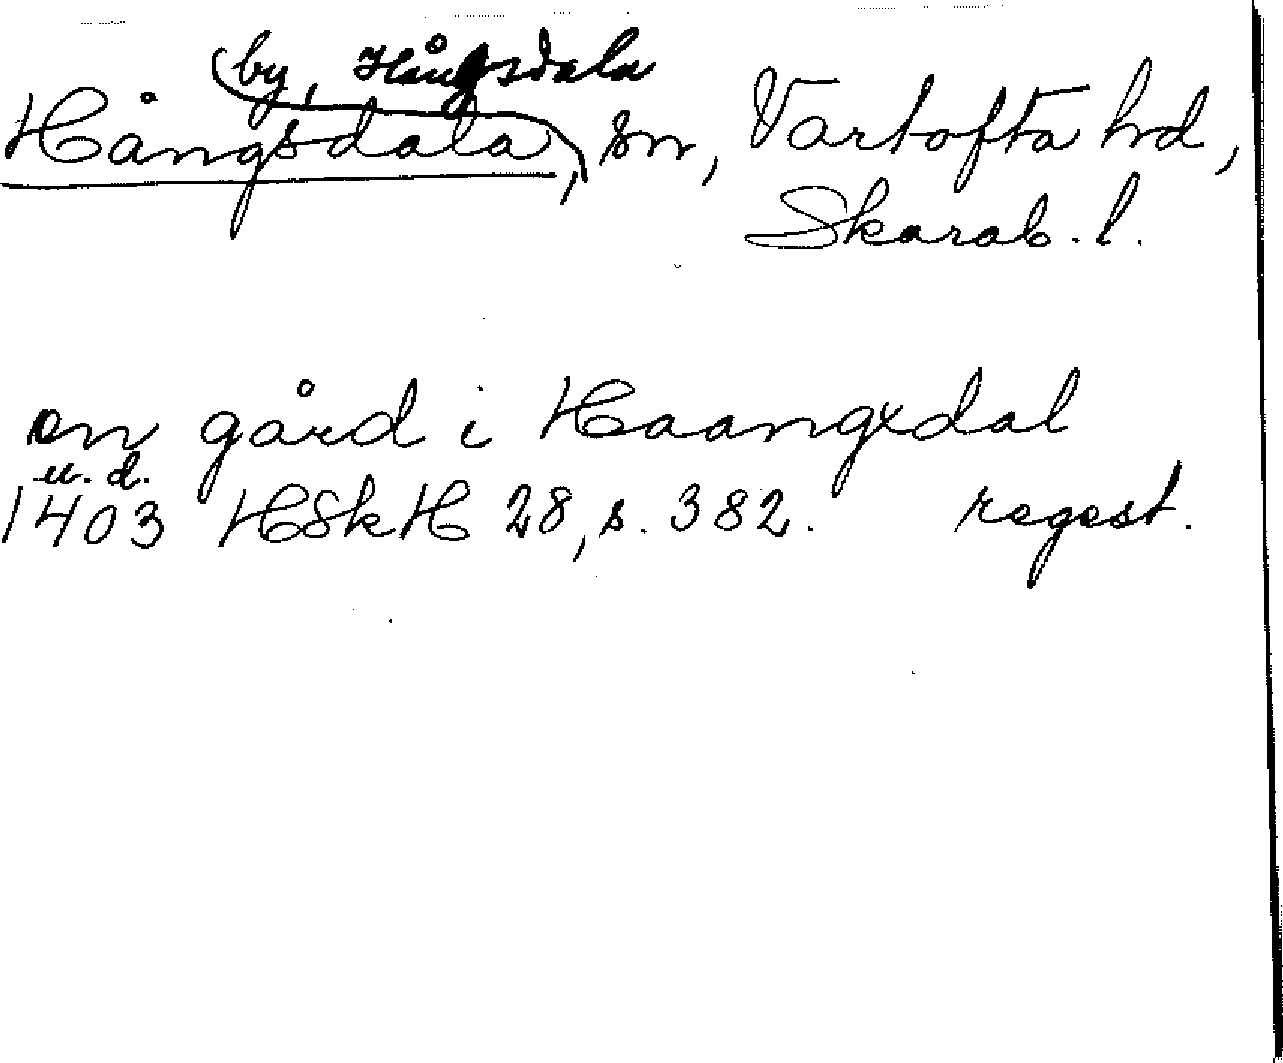 by, Hångsdala
Hångsdala, sn, Vartofta hd,
Skarab. l.
en gård i Haangxdal
u. d.
1403 HSkH 28, s. 382. regest.